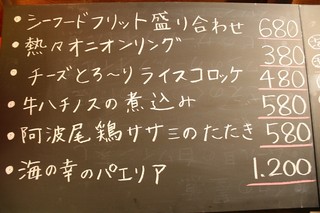 ・シーフードフリット盛り合わせ 680
・熱々オニオンリング 380
・チーズとろ〜りライスコロッケ 480
・牛ハチノスの煮込み 580
・阿波尾鶏ササミのたたき 580
・海の幸のパエリア 1.200